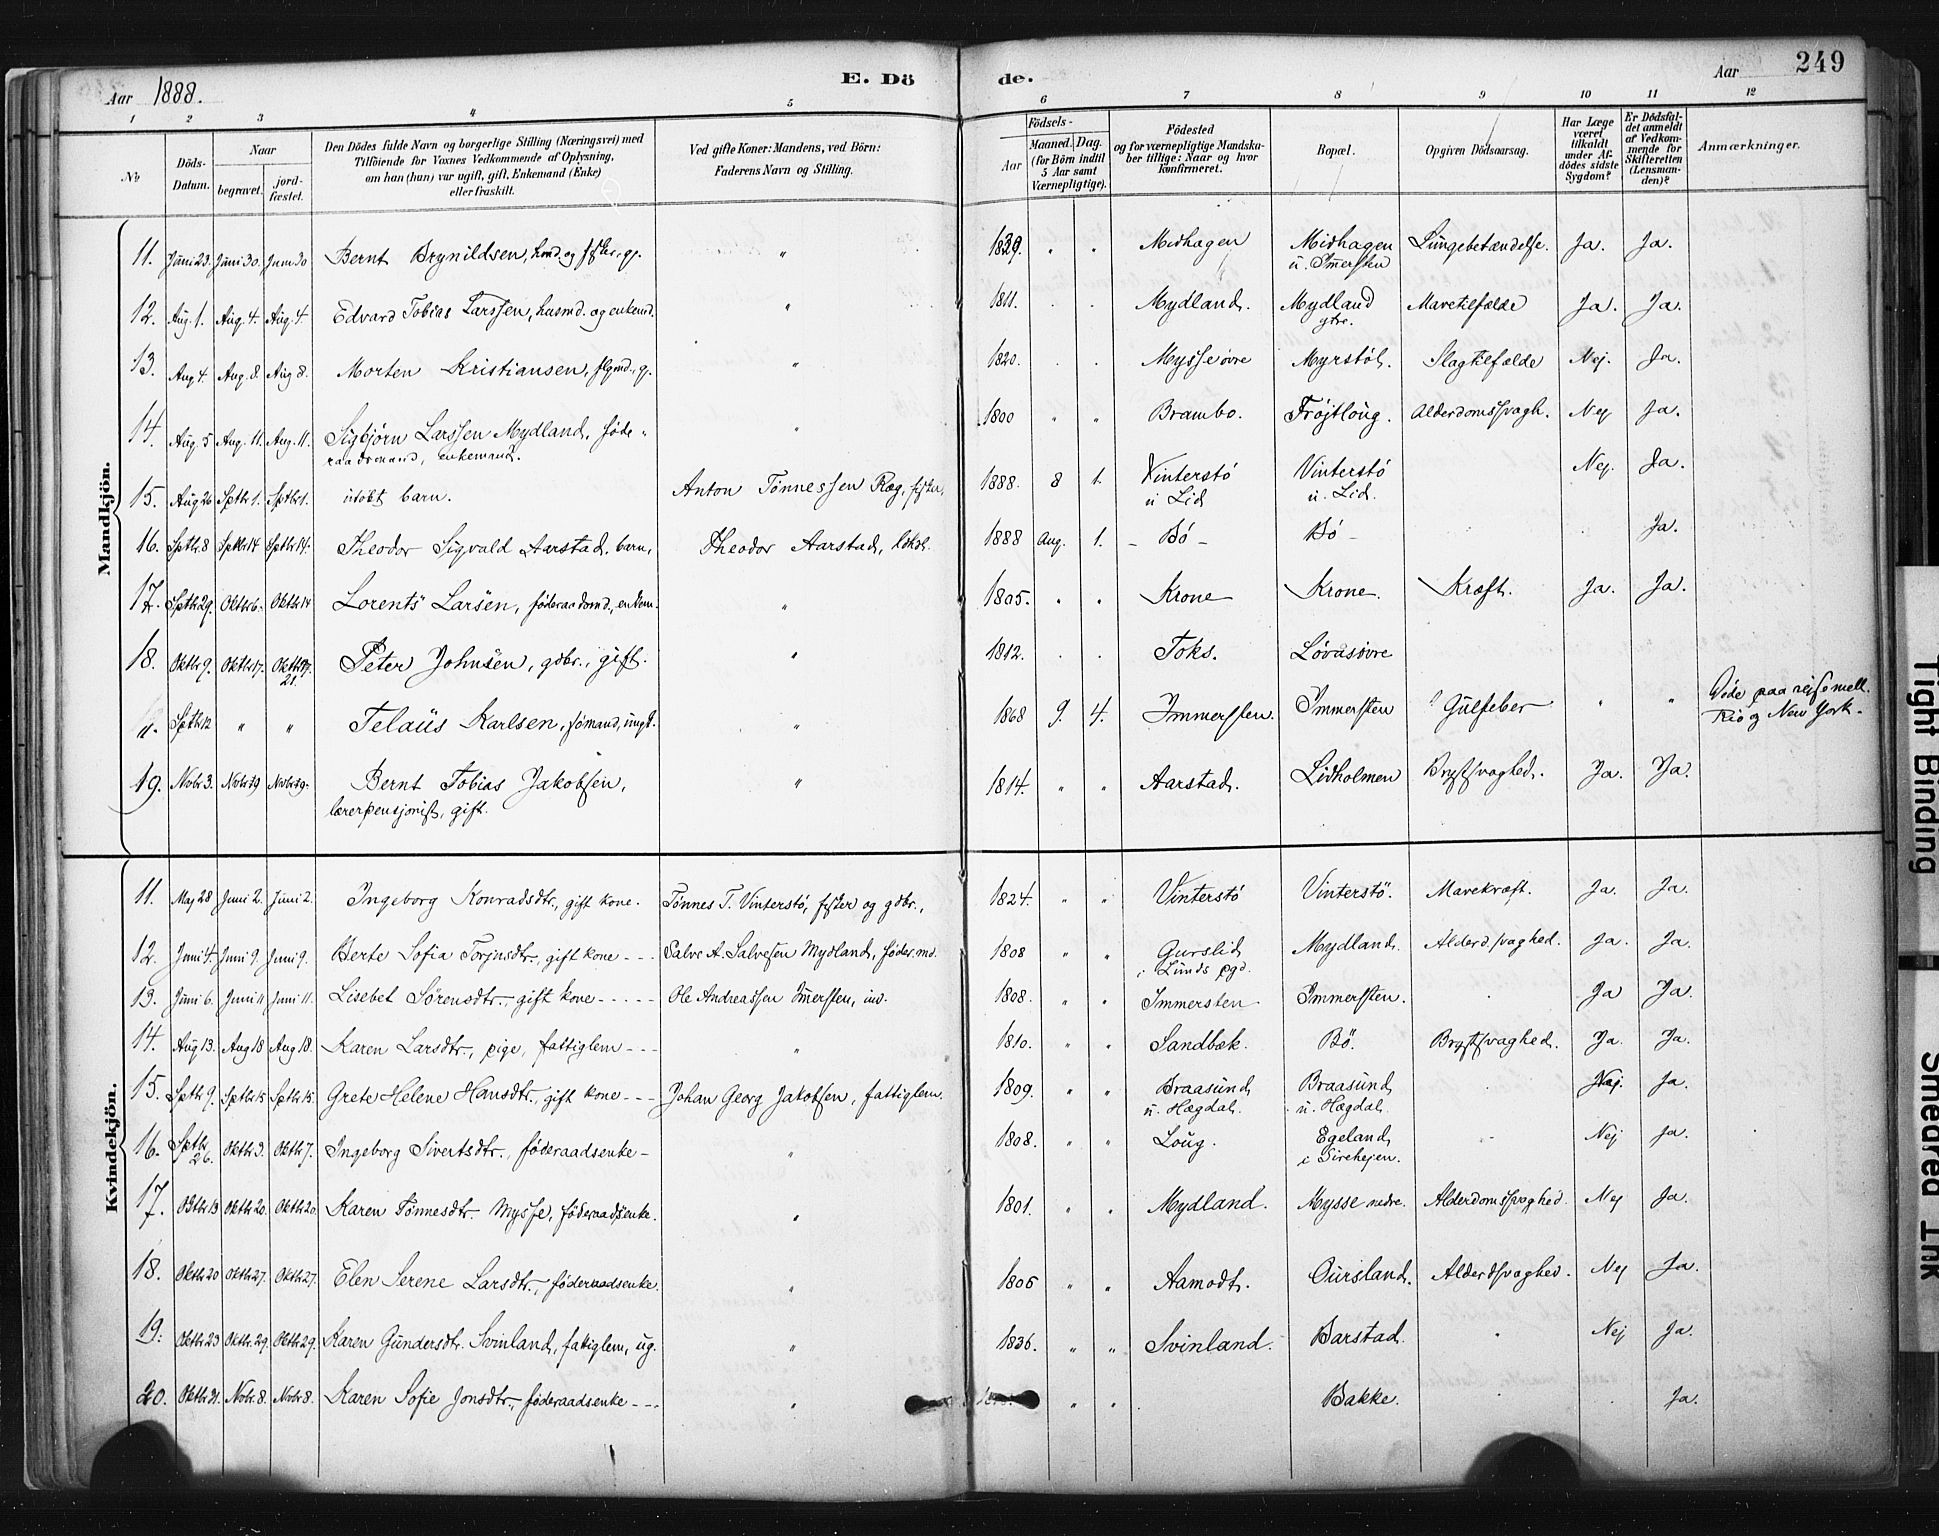 Aar 1888. E. Dö de. Aar 249
1 2 3 4 5 6 7 8 9 10 11 12
No
Döds-Datum.
Naar
begravet. jord-fæstet.
Den Dödes fulde Navn og borgerlige Stilling (Næringsvei) med
Tilföiende for Voxnes Vedkommende af Oplysning,
om han (hun) var ugift, gift, Enkemand (Enke)
eller fraskilt.
Ved gifte Koner: Mandens, ved Börn:
Faderens Navn og Stilling.
Födsels-
Aar
Maaned. Dag.
(for Börn indtil
5 Aar samt
Værnepligtige).
Födested
og for værnepligtige Mandska-
ber tillige: Naar og hvor
konfirmeret.
Bopæl.
Opgiven Dödsaarsag.
Har Læge
været
tilkaldt
under Af-
dödes sidste
Sygdom?
Er Dödsfal-
det anmeldt
af Vedkom-
mende for
Skifteretten
(Lensman-
den)?
Anmærkninger.
Mandkjön.
11. Juni 23. Juni 30. Juni 30 Bernt Brynildsen, " 1839. " " Midhagen Midhagen Lungebetændelse. Ja. Ja.
u. Immersten
12. Aug. 1. Aug. 4. Aug. 4. Edvard Tobias Larssen, husmd. og enkemd. " 1811. . . Mydland. Mydland Mavetilfælde Ja. Ja.
ytre.
13. Aug 4. Aug. 8. Aug 8. Morten Kristiansen, " 1820. . . Mysse øvre Myrstøl. Slagtilfælde Nej. Ja.
14. Aug. 5 Aug. 11. Aug. 11. Sigbjørn Larssen Mydland, føde- " 1800 " " Brambo. Frøjtloug. Alderdomssvagh. Nej Ja.
raadsmand, enkemand.
15. Aug 26 Septb 1. Septb 1. udøbt barn. Anton Tønnessen Ræg, 1888. 8 1. Vinterstø Vinterstø Nej. Ja.
u Lid u. Lid.
16. Septb. 8 Septb 14 Septb 14. Theodor Sigvald Aarstad, barn, Theodor Aarstad, 1888 Aug. 1. - Bø - Bø - Ja.
17. Septb 29. Oktb 6. Oktb 14 Lorents Larsen, føderaadsmd., enkem. " 1805. " " Krone Krone. Kræft. Ja. Ja.
18. Oktb 9. Oktb 17. Oktb 17. Peter Johnsen, gdbr., gift. " 1812. . . Toks. Løvåsøvre
21.
". Septb 12 " " Telaus Karlsen, sømand, ungk. " 1868 9. 4. Immersten. Immersten ? Gulfeber " " Døde paa rejse mell.
Rio og New York.
19. Novb 3. Novb 19 Novb 19. Bernt Tobias Jakobsen, " 1814. " " Aarstad. Lidholmen Brystsvaghed. Ja. Ja.
lærerpensjonist, gift.
Kvindekjön.
11. Maj 28 Juni 2. Juni 2. Ingeborg Konradsdtr., gift kone. Tønnes T. Vinterstø, fester og gdbr., 1824. " " Vinterstø Vinterstø. Mavekræft. Ja. Ja.
12. Juni 4. Juni 9. Juni 9. Berte Sofia Torjusdtr., gift kone - - - Salve A. Salvesen Mydland, føder.md. 1808 " " Gurslid Mydland. Alderd.svaghed. Ja. Ja.
i Lunds pgd.
13. Juni 6. Juni 11 Juni 11. Lisebet Sørensdtr., gift kone - - - - - Ole Andreassen Imersten, inv. 1808. " " Immersten Immersten. . Ja Ja.
14. Aug 13. Aug 18 Aug 18. Karen Larsdtr., pige, fattiglem - - - " 1810. " " Sandbæk. Bø. Brystsvaghed. Ja. Ja.
15. Septb 9. Septb 15 Septb 15. Grete Helene Hansdtr., gift kone - - - Johan Georg Jakobsen, fattiglem. 1809. " " Braasund Braasund . Nej. Ja.
u. Hægdal. u. Hægdal.
16. Septb 26. Oktb 3. Oktb 7. Ingeborg Sivertsdtr., føderaadsenke - " 1808. " " Loug. Egeland Nej Ja.
i Sirekejen.
17. Oktb 13 Oktb 20. Oktb 20. Karen Tønnesdtr. Mysse, føderaadsenke. " 1801. " " Mydland. Mysse nedre. Alderdomssvaghed. Nej Ja.
18. Oktb 20 Oktb 27. Oktb 27. Elen Serene Larsdtr., føderaadsenke. " 1806 " " Aamodt. Oursland. Alderdsvaghed. Nej Ja.
19. Oktb 23 Oktb 29. Oktb 29. Karen Gundersdtr. Svinland, fattiglem, ug. " 1836. " " Svinland. Barstad. " Nej Ja.
20. Oktb 31. Novb. 8. Novb 8. Karen Sofie Jonsdtr., føderaadsenke - - - " " " . Bakke. . . Ja.
Tight Binding
Smeared Ink